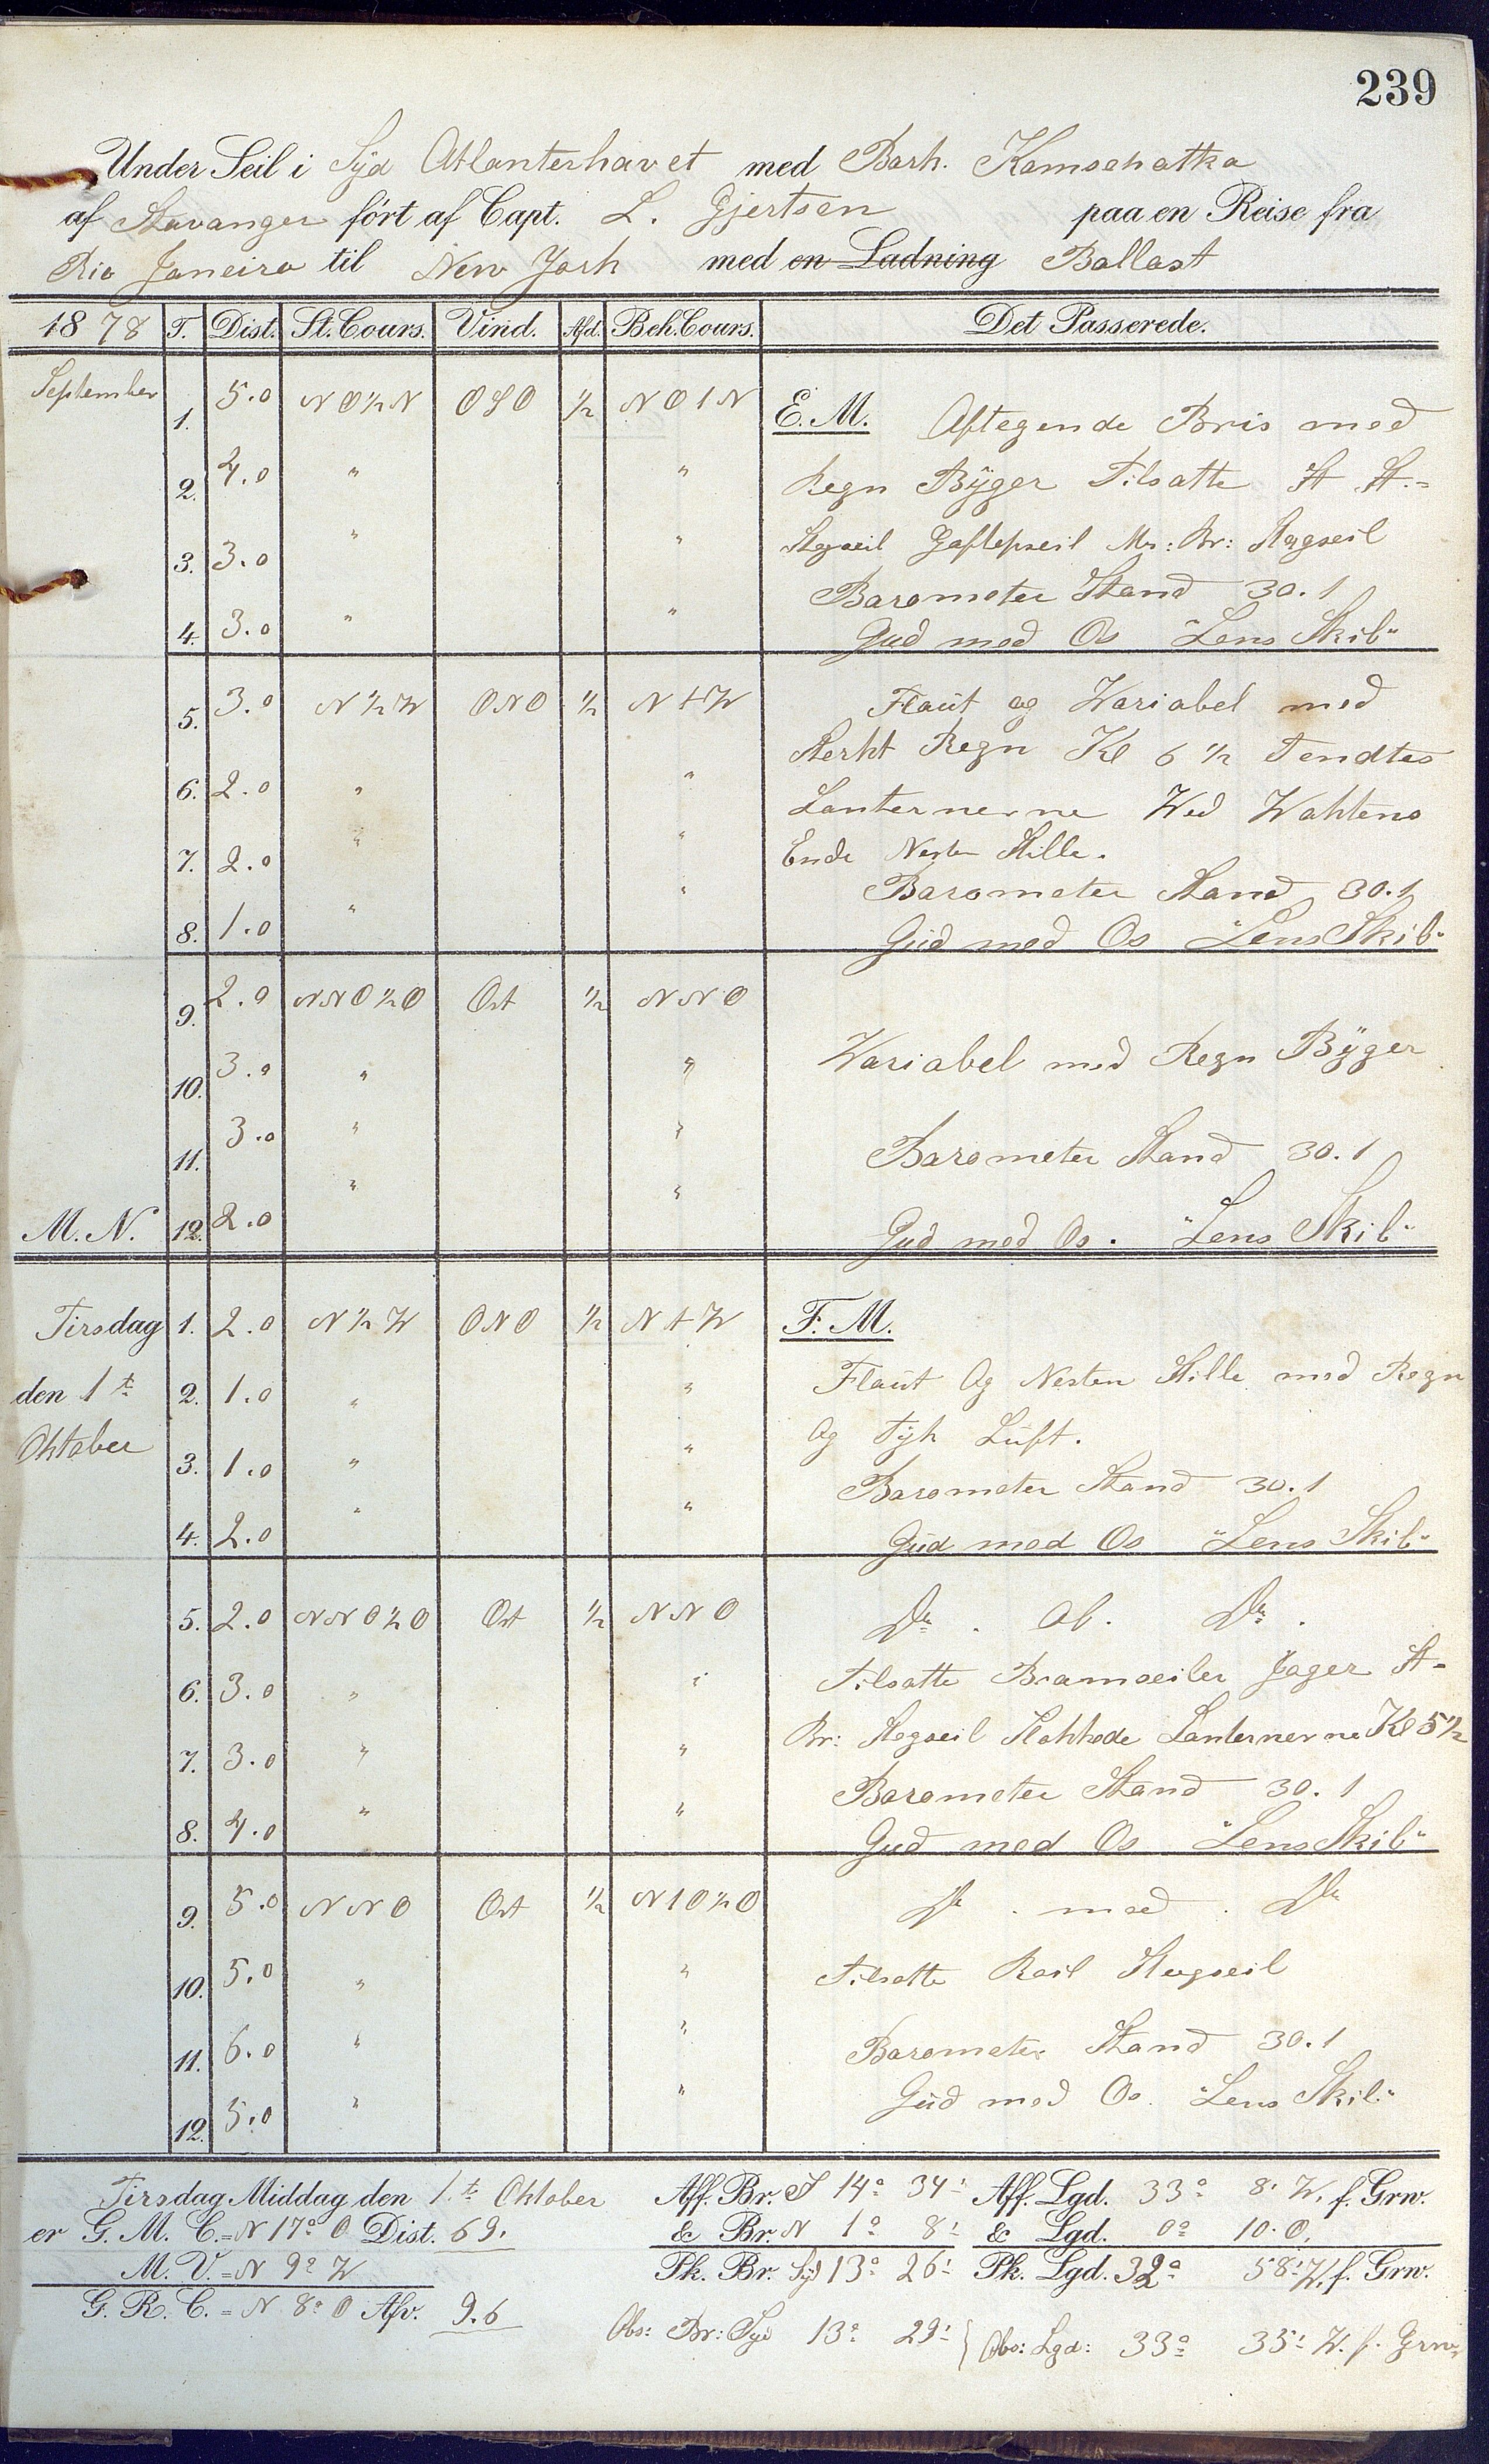 239
Under Seil i Syd Atlanterhavet med Bark. Kamschatka
af Stavanger fört af Capt. L. Gjertsen paa en Reise fra
Rio Janeiro til New York med en Ladning Ballast
18 78 T. Dist. St. Cours. Vind. Afd. Beh. Cours. Det Passerede.
September 1. 5.0 NO½N OSO ½ NO1N E. M. Aftegende Bris med
2. 4.0 " " Regn Byger Tilsatte St St.=
3. 3.0 " " Stagseil Gaflepseil Ms: Br: Stagseil
Barometer Stand 30.1
4. 3.0 " " Gud med Os "Lens Skib"
5. 3.0 N½W ONO ½ N1W Flaut og Wariabel med
Sterkt Regn Kl 6½ Tendtes
6. 2.0 " " Lanternerne Wed Waktens
7. 2.0 " " Ende Nesten Stille.
Barometer Stand 30.1
8. 1.0 " " Gud med Os "Lens Skib"
9. 2.0 NNO½O Ost ½ NNO
10. 3.0 " " Wariabel med Regn Byger
11. 3.0 " " Barometer Stand 30.1
M. N. 12. 2.0 " " Gud med Os. "Lens Skib"
Tirsdag 1. 2.0 N½W ONO ½ N1W F. M.
den 1te 2. 1.0 " " Flaut Og Nesten Stille med Regn
Oktober 3. 1.0 " " Og Tyk Luft.
Barometer Stand 30.1
4. 2.0 " " Gud med Os "Lens Skib"
5. 2.0 NNO½O Ost ½ NNO Do. Ob. Do.
6. 3.0 " " Tilsatte Bramseiler Jager St-
7. 3.0 " " Br: Stagseil Slokkede Lanternerne Kl 5½
Barometer Stand 30.1
8. 4.0 " " Gud med Os "Lens Skib"
9. 5.0 NNO Ost ½ N1O½O Do. med. Do
10. 5.0 " " Tilsatte Roil Stagseil
11. 6.0 " " Barometer Stand 30.1
12. 5.0 " " Gud med Os. "Lens Skib"
Tirsdag Middag den 1.te Oktober Aff. Br. S 14° 34' Aff. Lgd. 33° 8' W. f. Grw.
er G. M. C. = N 17° O Dist. 69. & Br. N 1° 8' & Lgd. 0° 10' O.
M. V. = N 9° W Pk. Br. Syd 13° 26' Pk. Lgd. 32° 58' W. f. Grw.
G. R. C. = N 8° O Afv. 9.6
Obs: Br: Syd 13° 29' } Obs: Lgd: 33° 35' W. f. Grw.